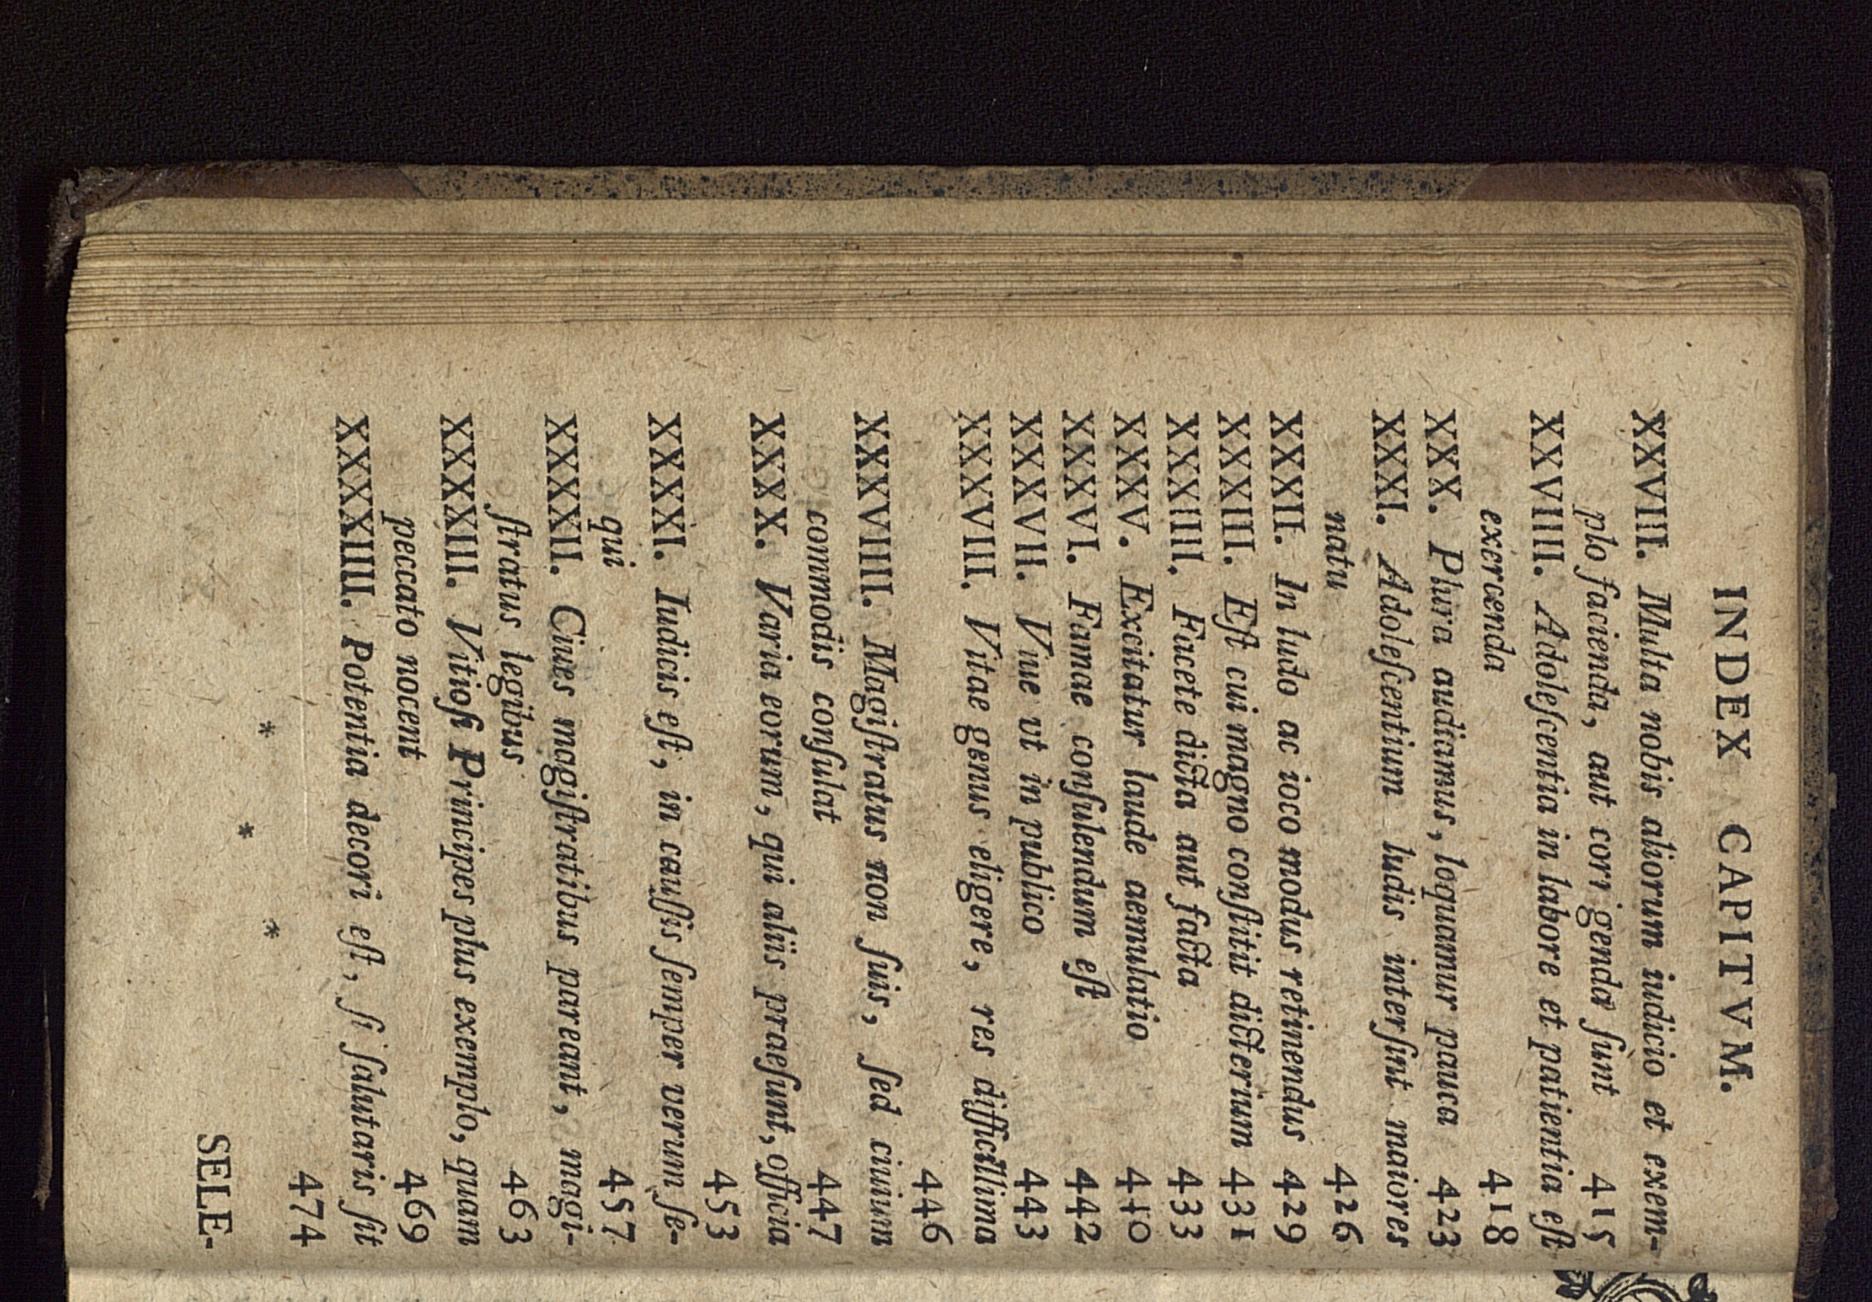 INDEX CAPITVM.
XXVIII. Multa nobis aliorum iudicio et exem-
plo facienda, aut corrigenda ſunt 415
XXVIIII. Adoleſcentia in labore et patientia eſt
exercenda 418
XXX. Plura audiamus, loquamur pauca 423
XXXI. Adoleſcentium ludis interſint maiores
natu 426
XXXII. In ludo ac ioco modus retinendus 429
XXXIII. Eſt cui magno conſtitit dicterium 431
XXXIIII. Facete dicta aut facta 433
XXXV. Excitatur laude aemulatio 440
XXXVI. Famae conſulendum eſt 442
XXXVII. Viue vt in publico 443
XXXVIII. Vitae genus eligere, res difficillima
446
XXXVIIII. Magiſtratus non ſuis, ſed ciuium
commodis conſulat 447
XXXX. Varia eorum, qui aliis praeſunt, officia
453
XXXXI. Iudicis eſt, in cauſſis ſemper verum ſe-
qui 457
XXXXII. Ciues magiſtratibus pareant, magi-
ſtratus legibus 463
XXXXIII. Vitioſi Principes plus exemplo, quam
peccato nocent 469
XXXXIIII. Potentia decori eſt, ſi ſalutaris ſit
474
* * *
SELE-